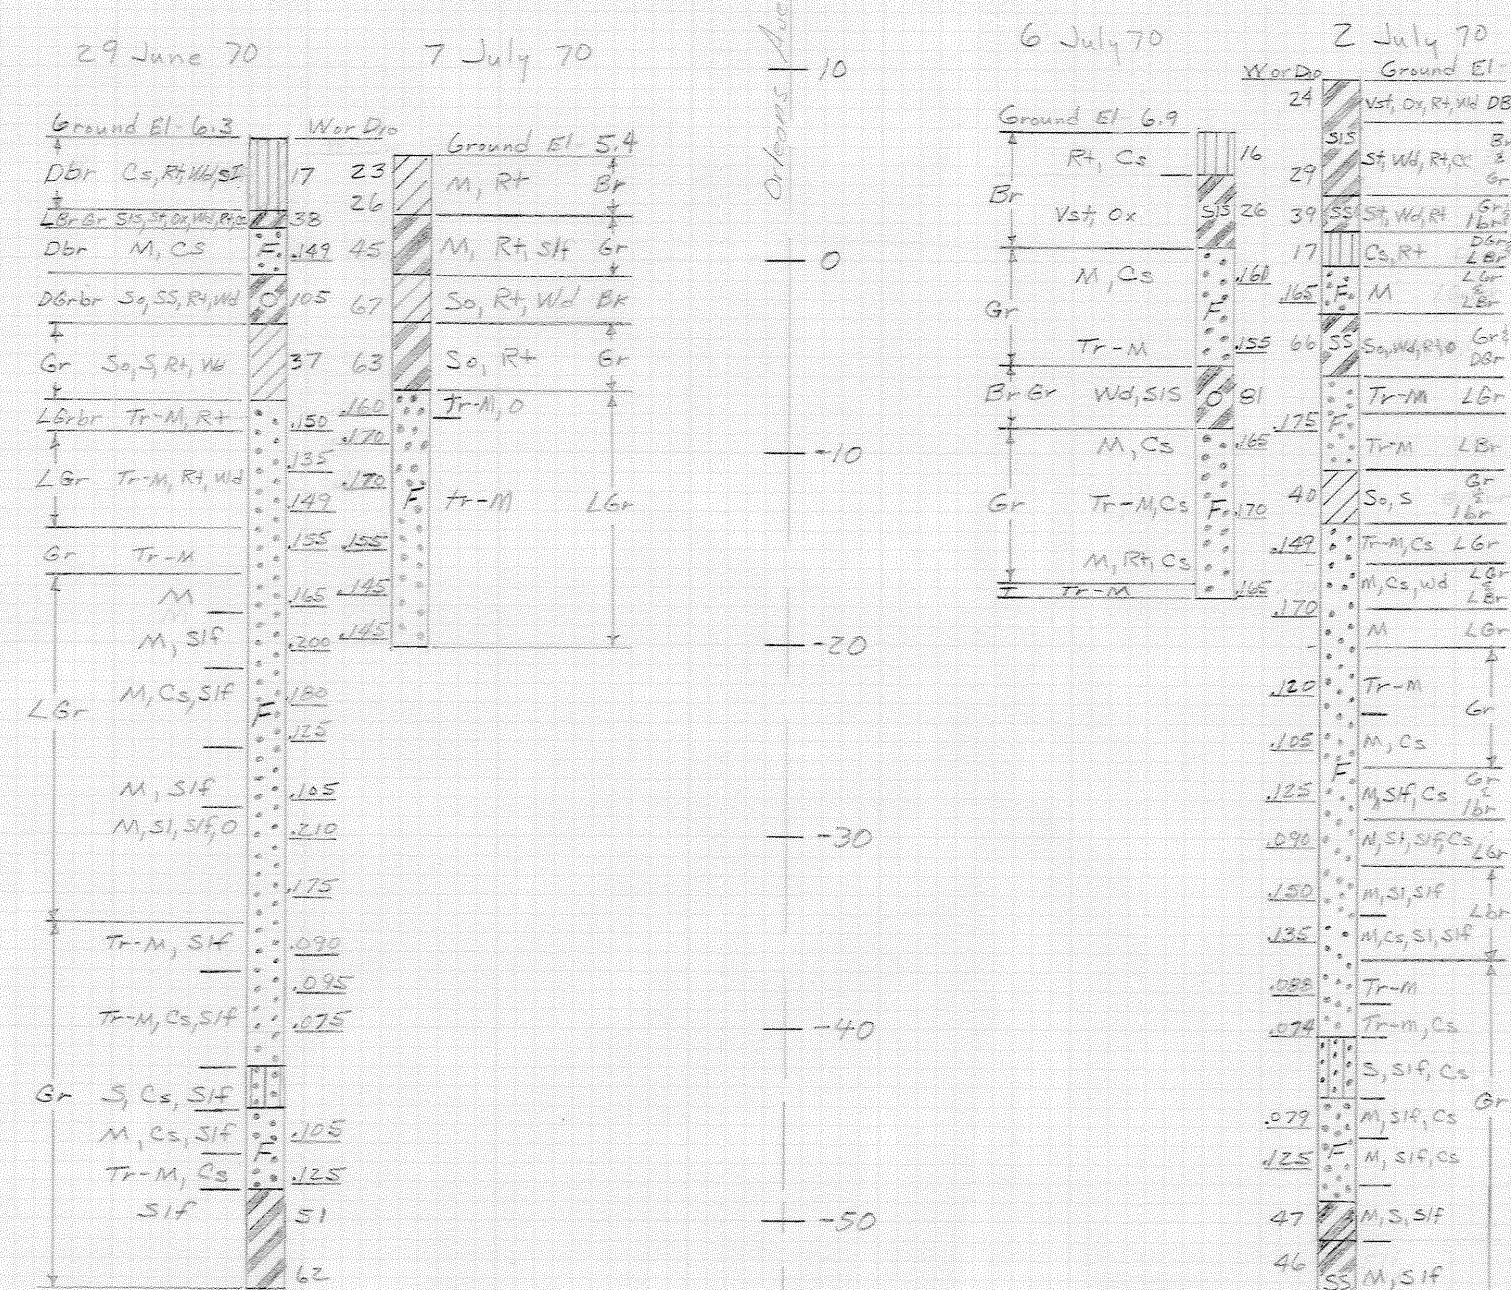 29 June 70
Ground El- 6.3
Wor D10
Dbr Cs, Rt, Wd, SI 17
LBrGr SIS, St, Ox, Wd, Rt, cc 38
Dbr M, CS F .149
DGrbr So, SS, Rt, Wd O 105
Gr So, S, Rt, Wd 37
LGrbr Tr-M, Rt .150
.135
LGr Tr-M, Rt, Wd
.149
.155
Gr Tr-M
M .165
M, SIf .200
M, Cs, SIf .180
LGr F
.125
M, SIf .105
M, SI, SIf, O .210
.175
Tr-M, SIf .090
.095
Tr-M, Cs, SIf .075
Gr S, Cs, SIf
M, Cs, SIf .105
F
Tr-M, Cs .125
SIf 51
62
7 July 70
Ground El- 5.4
23 M, Rt Br
26
45 M, Rt, SIf Gr
67 So, Rt, Wd Br
63 So, Rt Gr
.160 Tr-M, O
.170
.170
F tr-M LGr
.155
.145
.145
Orleans Ave
10
0
-10
-20
-30
-40
-50
6 July 70
Ground El- 6.9
Rt, Cs 16
Br
Vst, Ox SIS 26
M, Cs .161
Gr F
Tr-M .155
Br Gr Wd, SIS O 81
M, Cs .165
Gr Tr-M, Cs F .170
M, Rt, Cs
Tr-M .165
2 July 70
Wor D10 Ground El-
24 Vst, Ox, Rt, Wd DB
SIS Br
29 St, Wd, Rt, cc &
Gr
39 SS St, Wd, Rt Gr &
lbr
17 Cs, Rt DGr &
LBr
.165 F M LGr
&
LBr
66 SS So, Wd, Rt, O Gr &
DGr
Tr-M LGr
.175 F
Tr-M LBr
40 So, S Gr
&
lbr
.149 Tr-M, Cs LGr
M, Cs, Wd LGr
&
LBr
.170
M LGr
.120 Tr-M
Gr
.105 M, Cs
F
.125 M, SIf, Cs Gr
&
lbr
.090 M, SI, SIf, Cs LGr
.150 M, SI, SIf
Lbr
.135 M, Cs, SI, SIf
.088 Tr-M
.074 Tr-M, Cs
S, SIf, Cs
Gr
.079 M, SIf, Cs
.125 F M, SIf, Cs
47 M, S, SIf
46
SS M, SIf